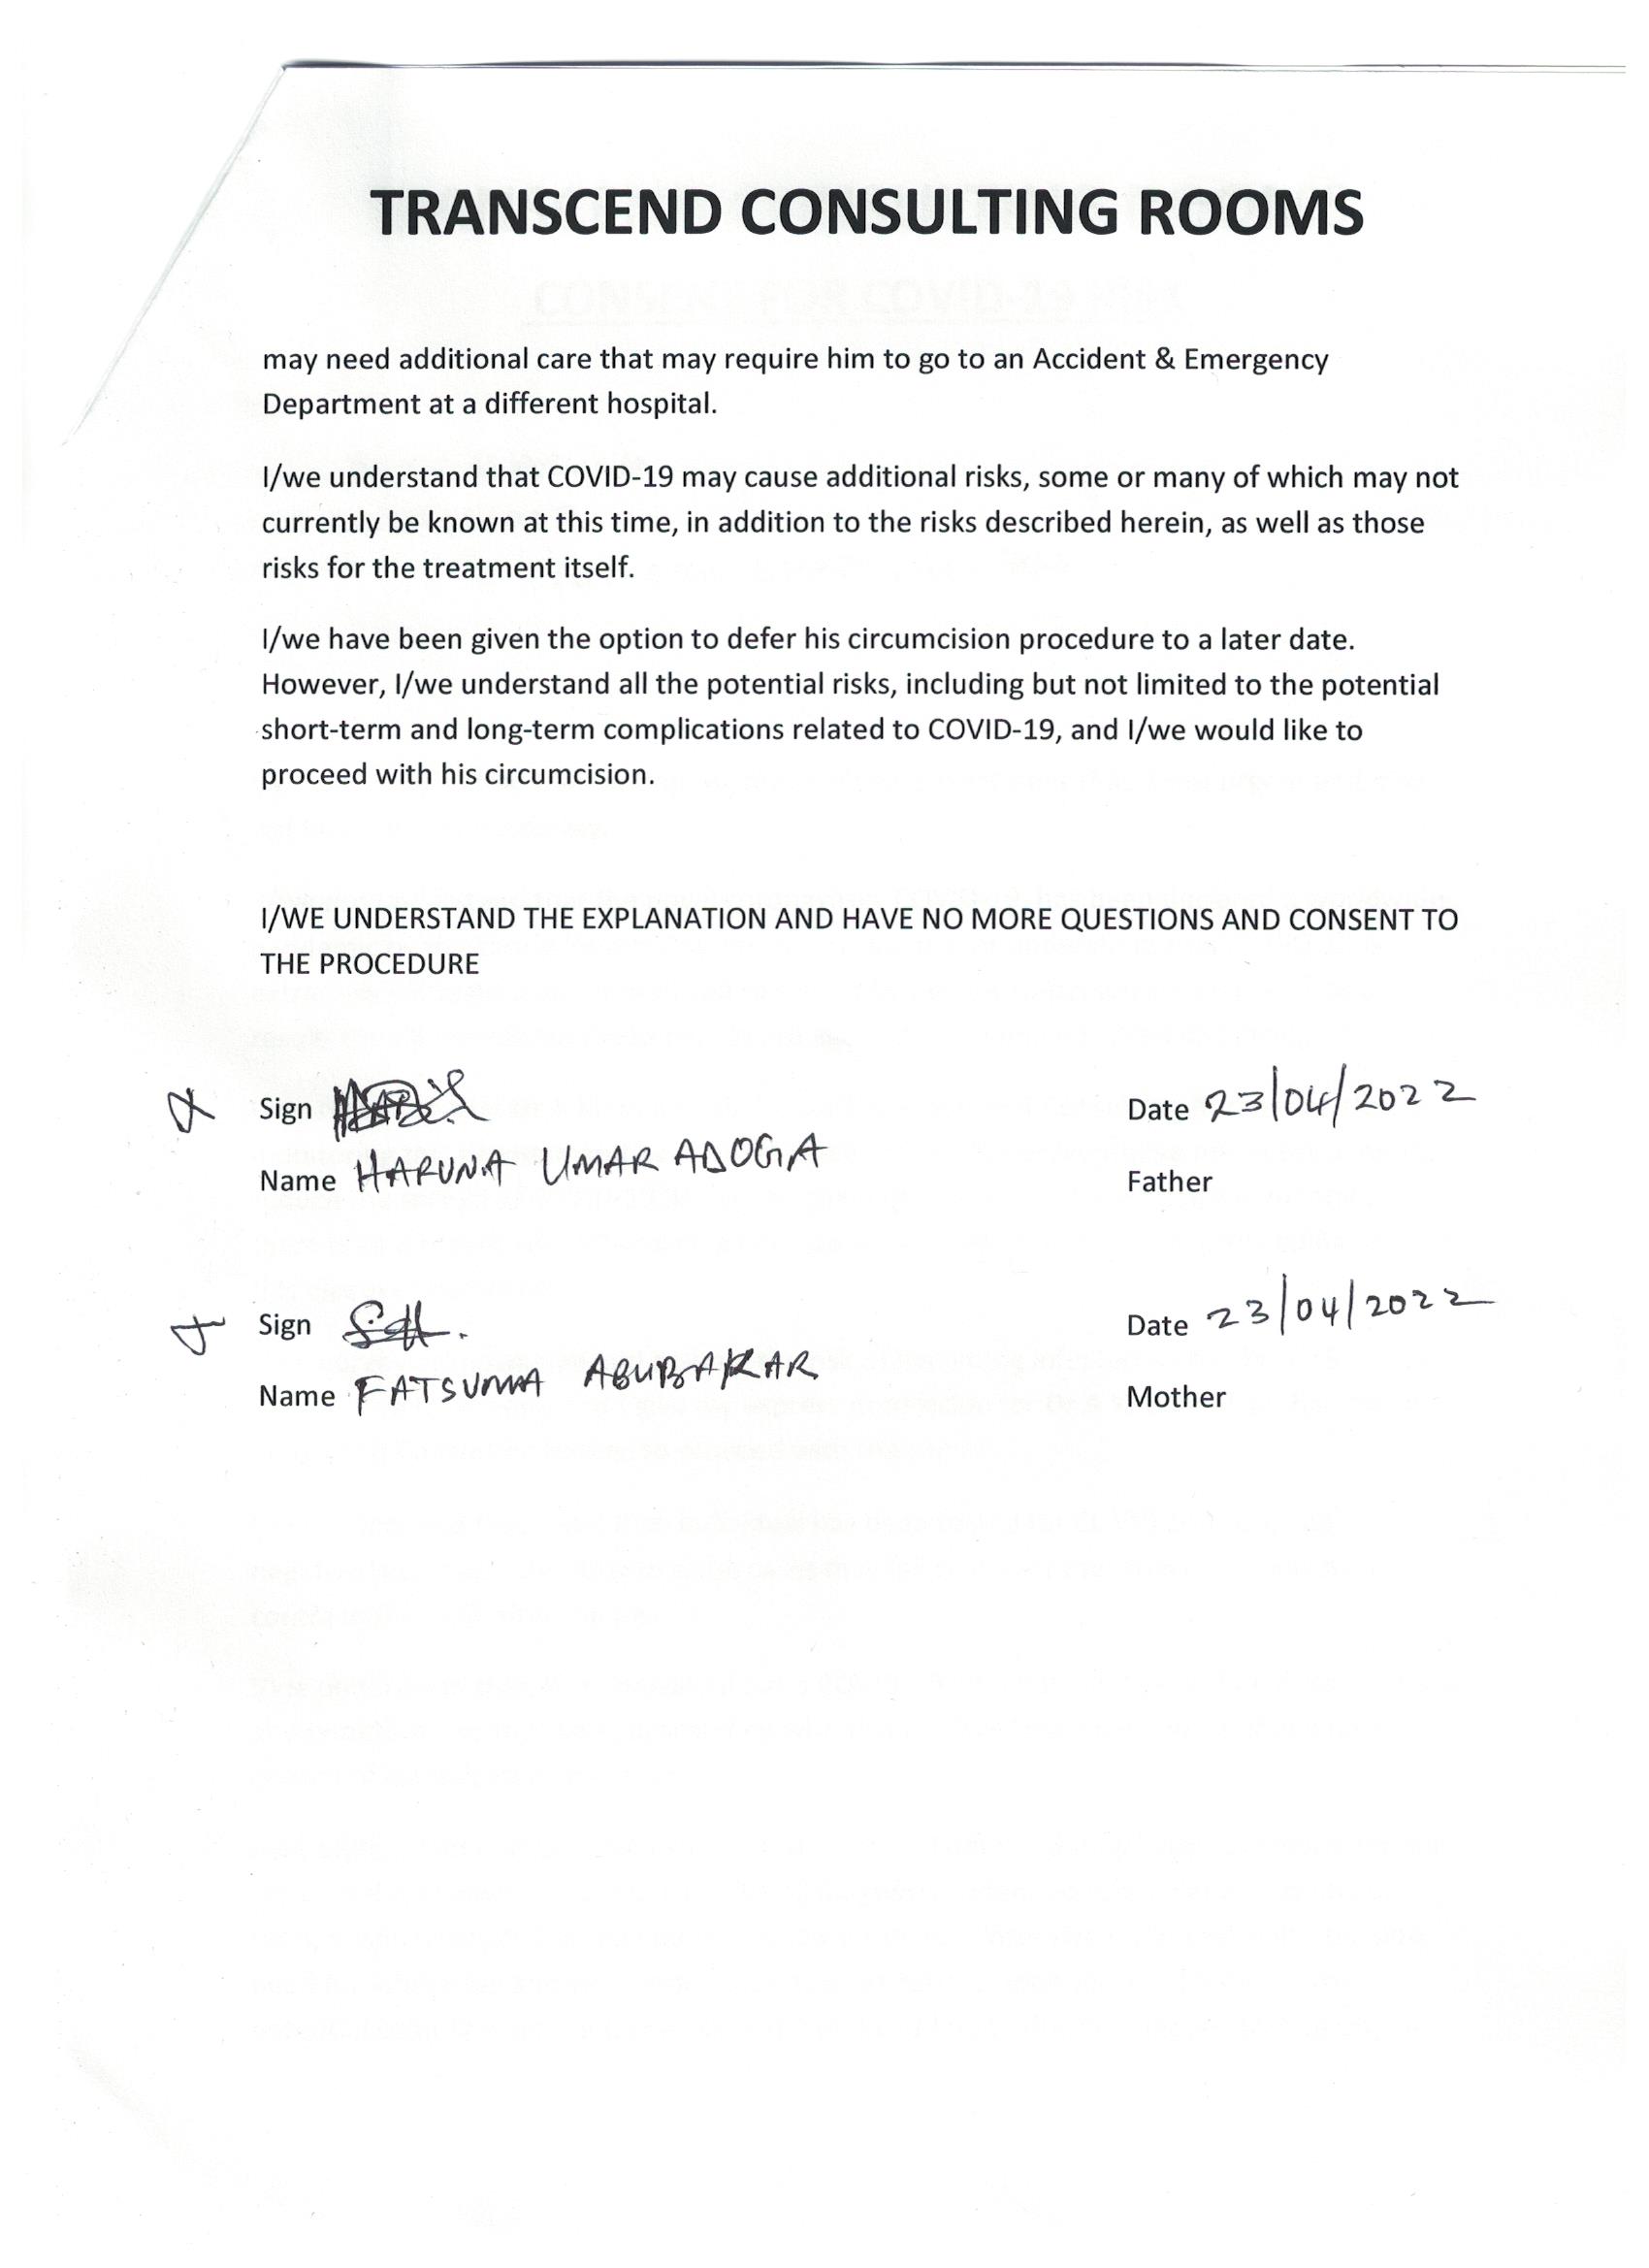 TRANSCEND CONSULTING ROOMS
may need additional care that may require him to go to an Accident & Emergency
Department at a different hospital.
I/we understand that COVID-19 may cause additional risks, some or many of which may not
currently be known at this time, in addition to the risks described herein, as well as those
risks for the treatment itself.
I/we have been given the option to defer his circumcision procedure to a later date.
However, I/we understand all the potential risks, including but not limited to the potential
short-term and long-term complications related to COVID-19, and I/we would like to
proceed with his circumcision.
I/WE UNDERSTAND THE EXPLANATION AND HAVE NO MORE QUESTIONS AND CONSENT TO
THE PROCEDURE
Sign Date 23/04/2022
Name HARUNA UMAR ADOGA Father
Sign Date 23/04/2022
Name FATSUMA ABUBAKAR Mother